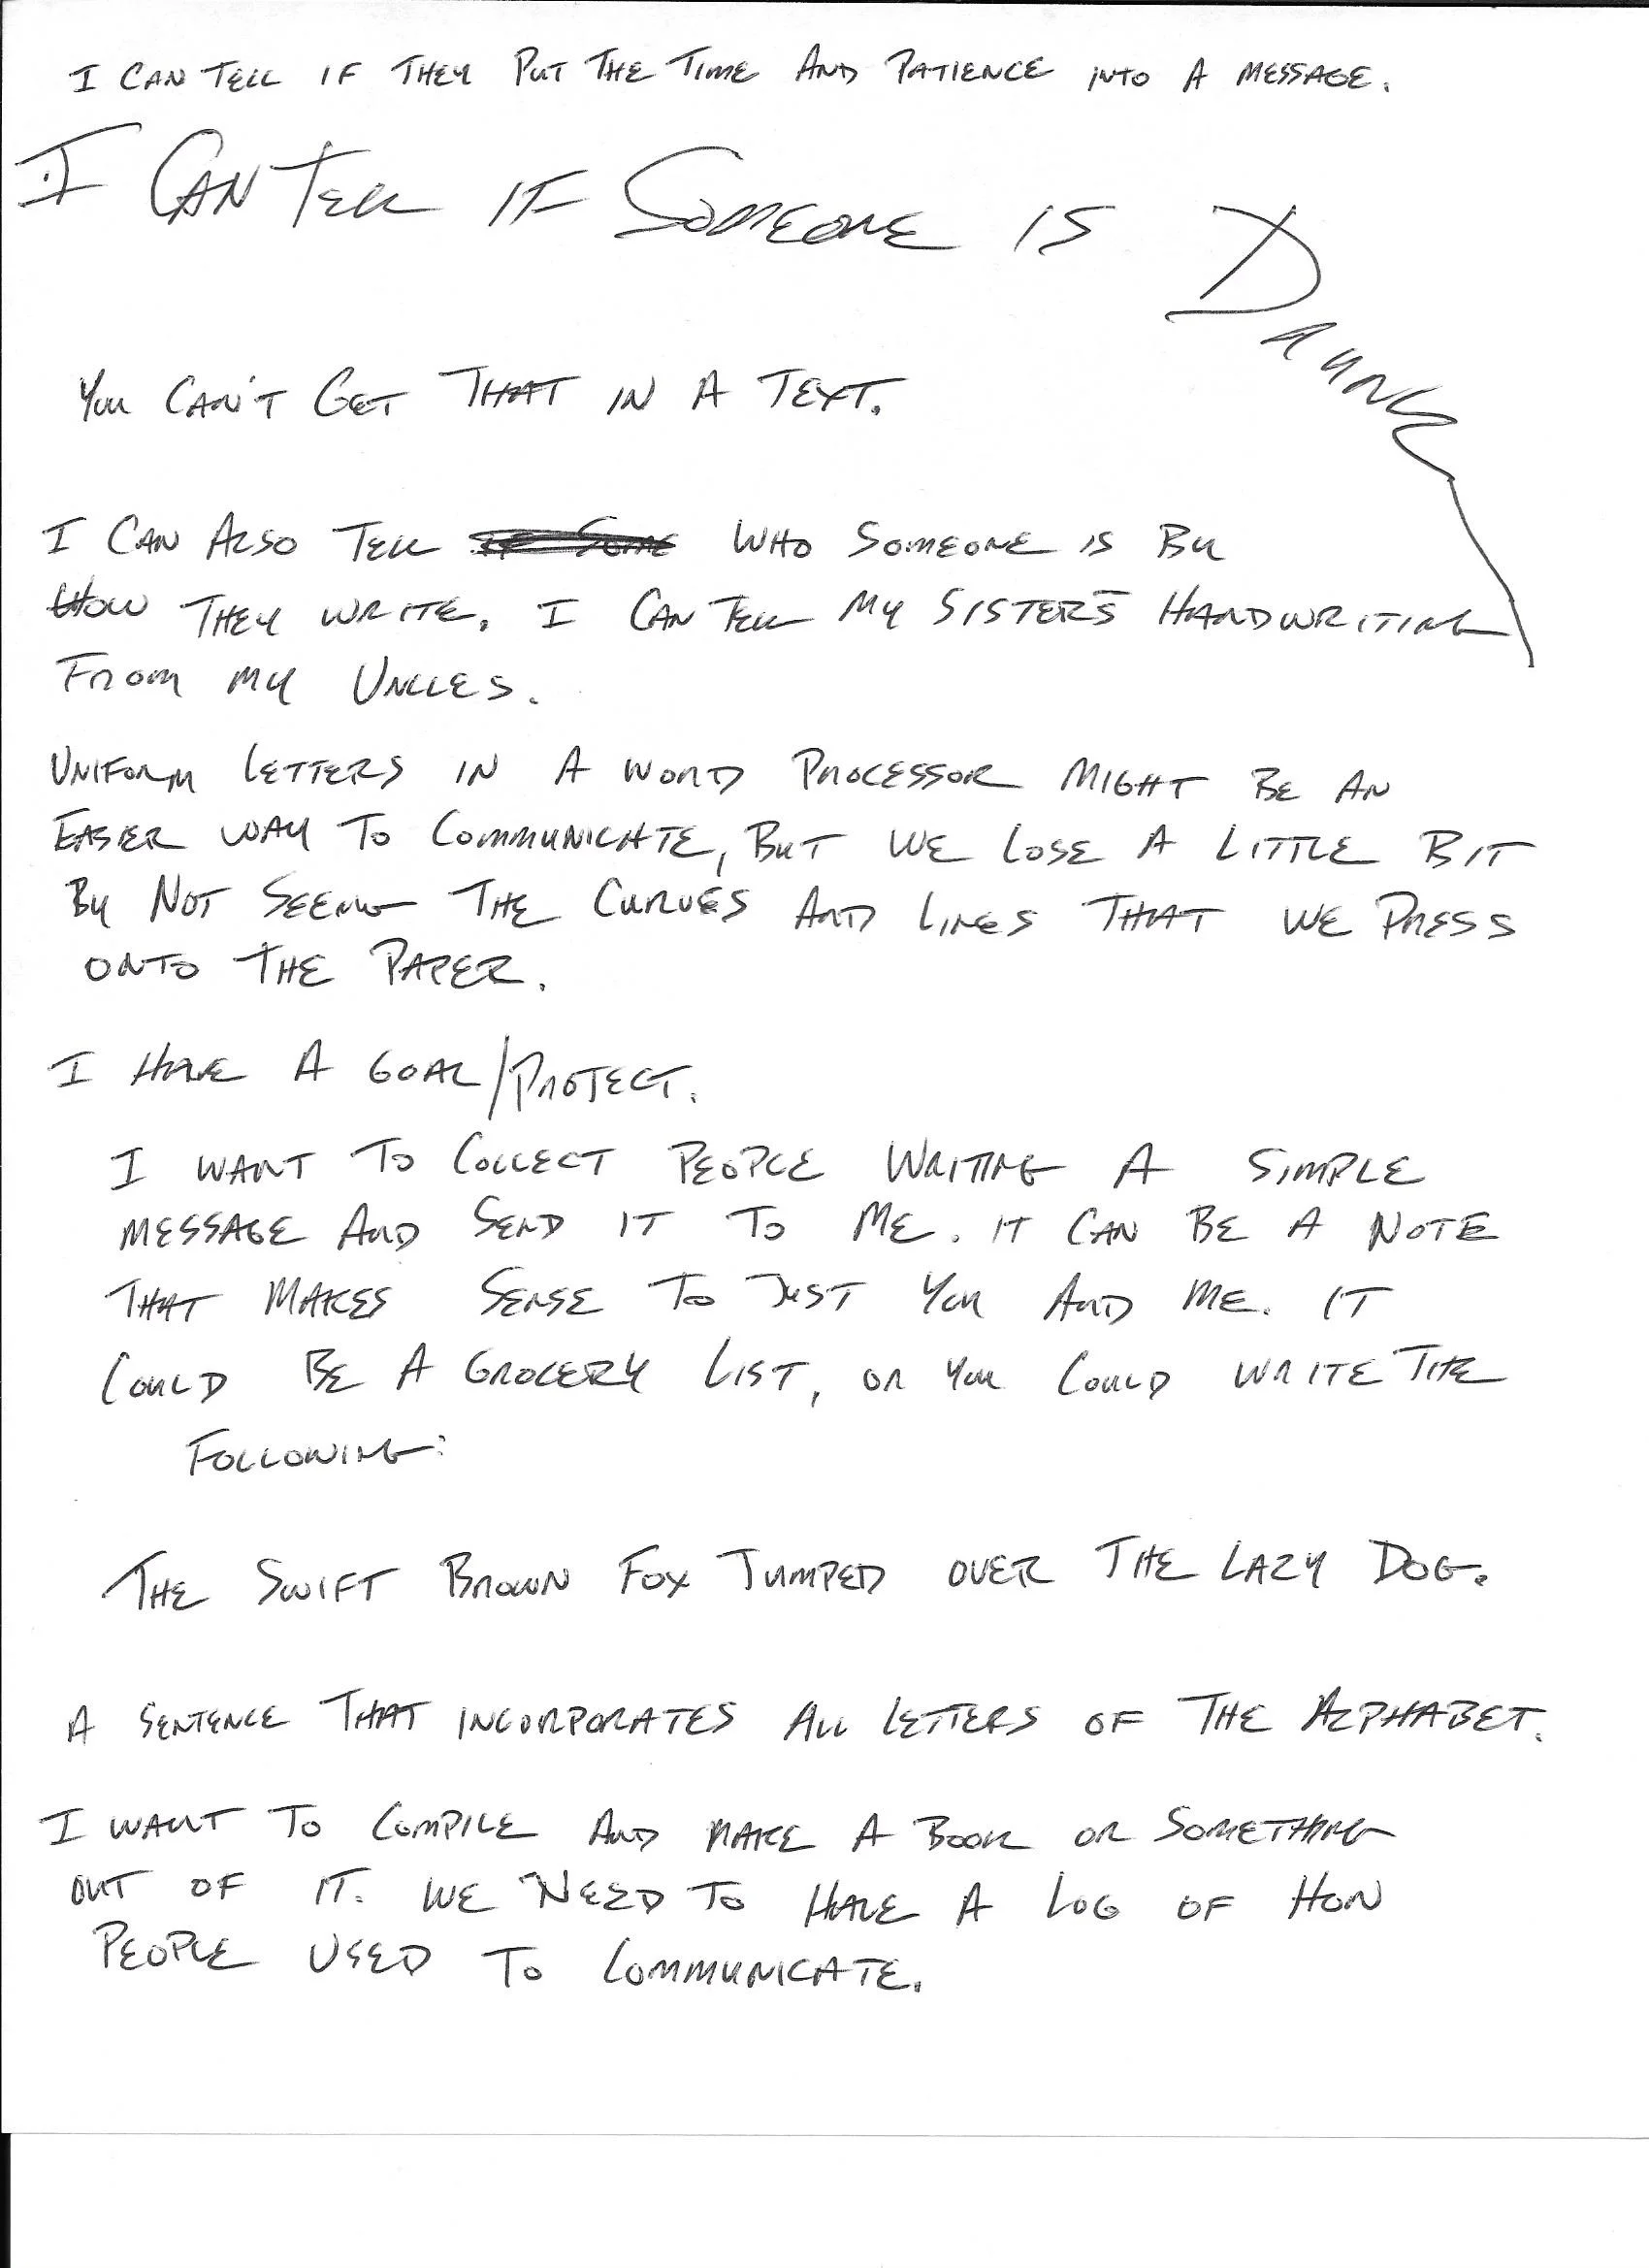 I CAN TELL IF THEY PUT THE TIME AND PATIENCE INTO A MESSAGE.
I CAN TELL IF SOMEONE IS DRUNK
YOU CAN'T GET THAT IN A TEXT.
I CAN ALSO TELL IF SOME WHO SOMEONE IS BY
HOW THEY WRITE. I CAN TELL MY SISTER'S HANDWRITING
FROM MY UNCLES.
UNIFORM LETTERS IN A WORD PROCESSOR MIGHT BE AN
EASIER WAY TO COMMUNICATE, BUT WE LOSE A LITTLE BIT
BY NOT SEEING THE CURVES AND LINES THAT WE PRESS
ONTO THE PAPER.
I HAVE A GOAL/PROJECT.
I WANT TO COLLECT PEOPLE WRITING A SIMPLE
MESSAGE AND SEND IT TO ME. IT CAN BE A NOTE
THAT MAKES SENSE TO JUST YOU AND ME. IT
COULD BE A GROCERY LIST, OR YOU COULD WRITE THE
FOLLOWING:
THE SWIFT BROWN FOX JUMPED OVER THE LAZY DOG.
A SENTENCE THAT INCORPORATES ALL LETTERS OF THE ALPHABET.
I WANT TO COMPILE AND MAKE A BOOK OR SOMETHING
OUT OF IT. WE NEED TO HAVE A LOG OF HOW
PEOPLE USED TO COMMUNICATE.